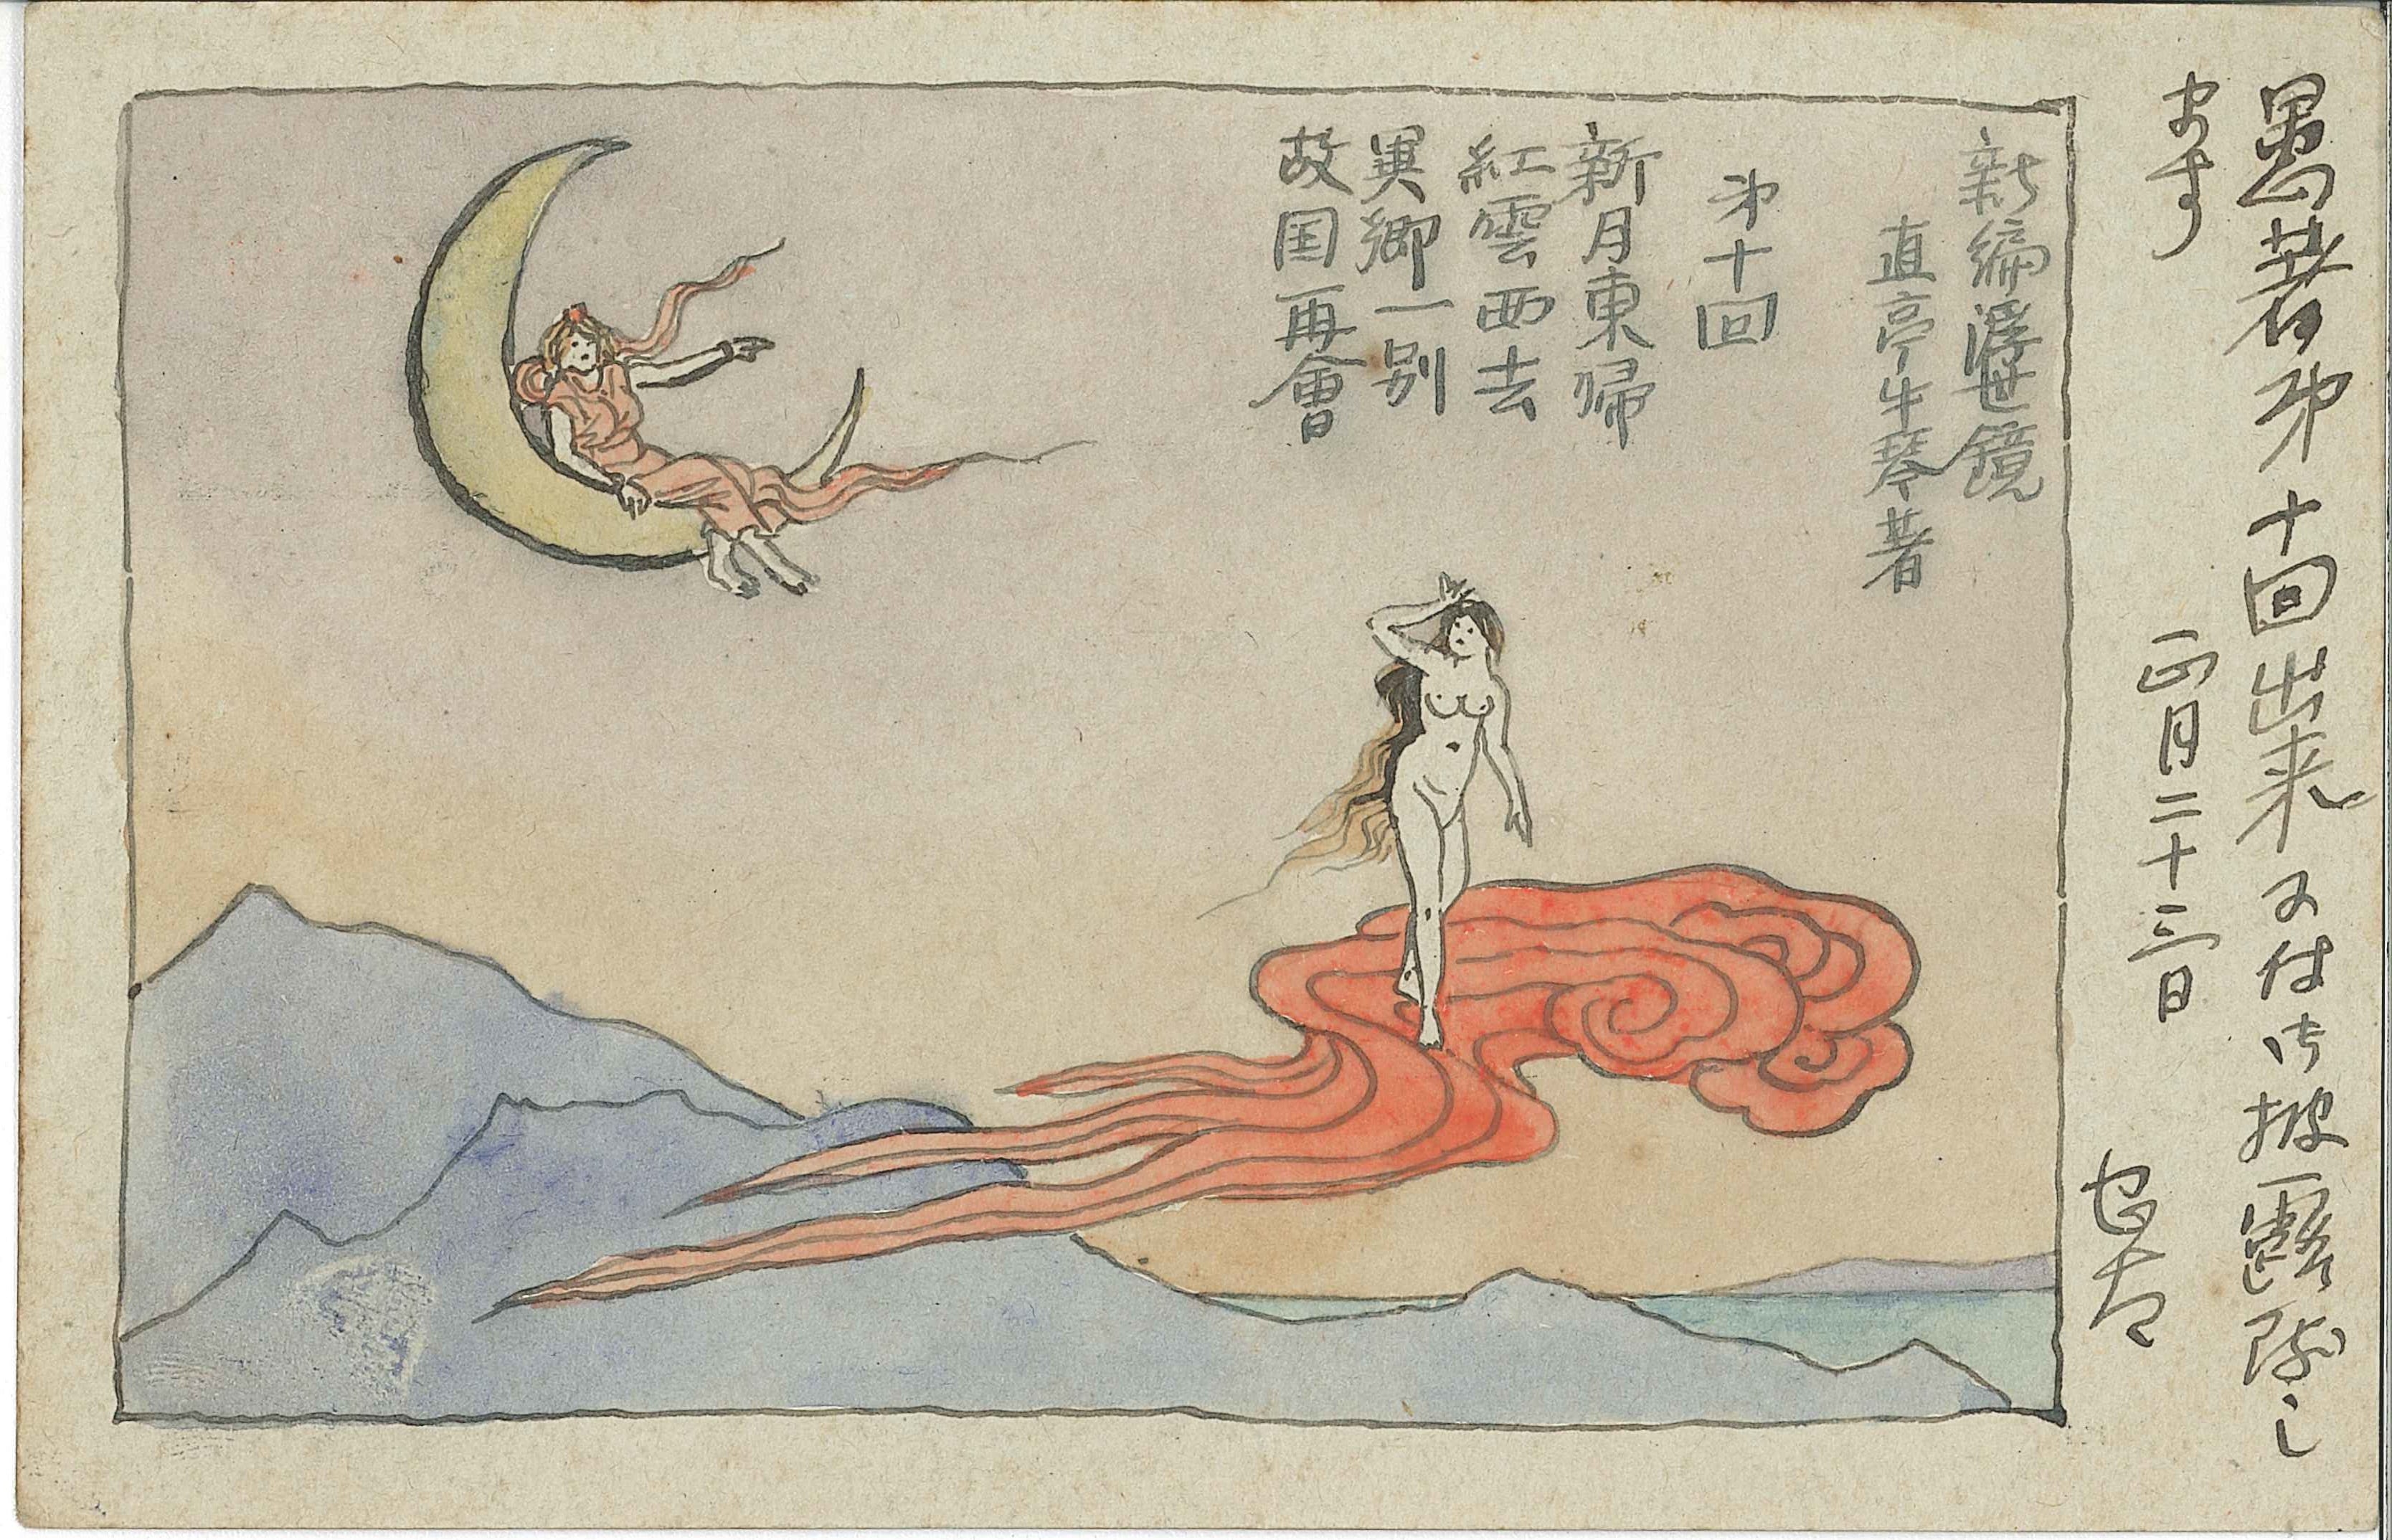 愚著第十回出来ニ付御披露致し
ます
正月二十三日
新編浮世鏡
直亭牛琴著
第十回
新月東帰
紅雲西去
異郷一別
故国再會